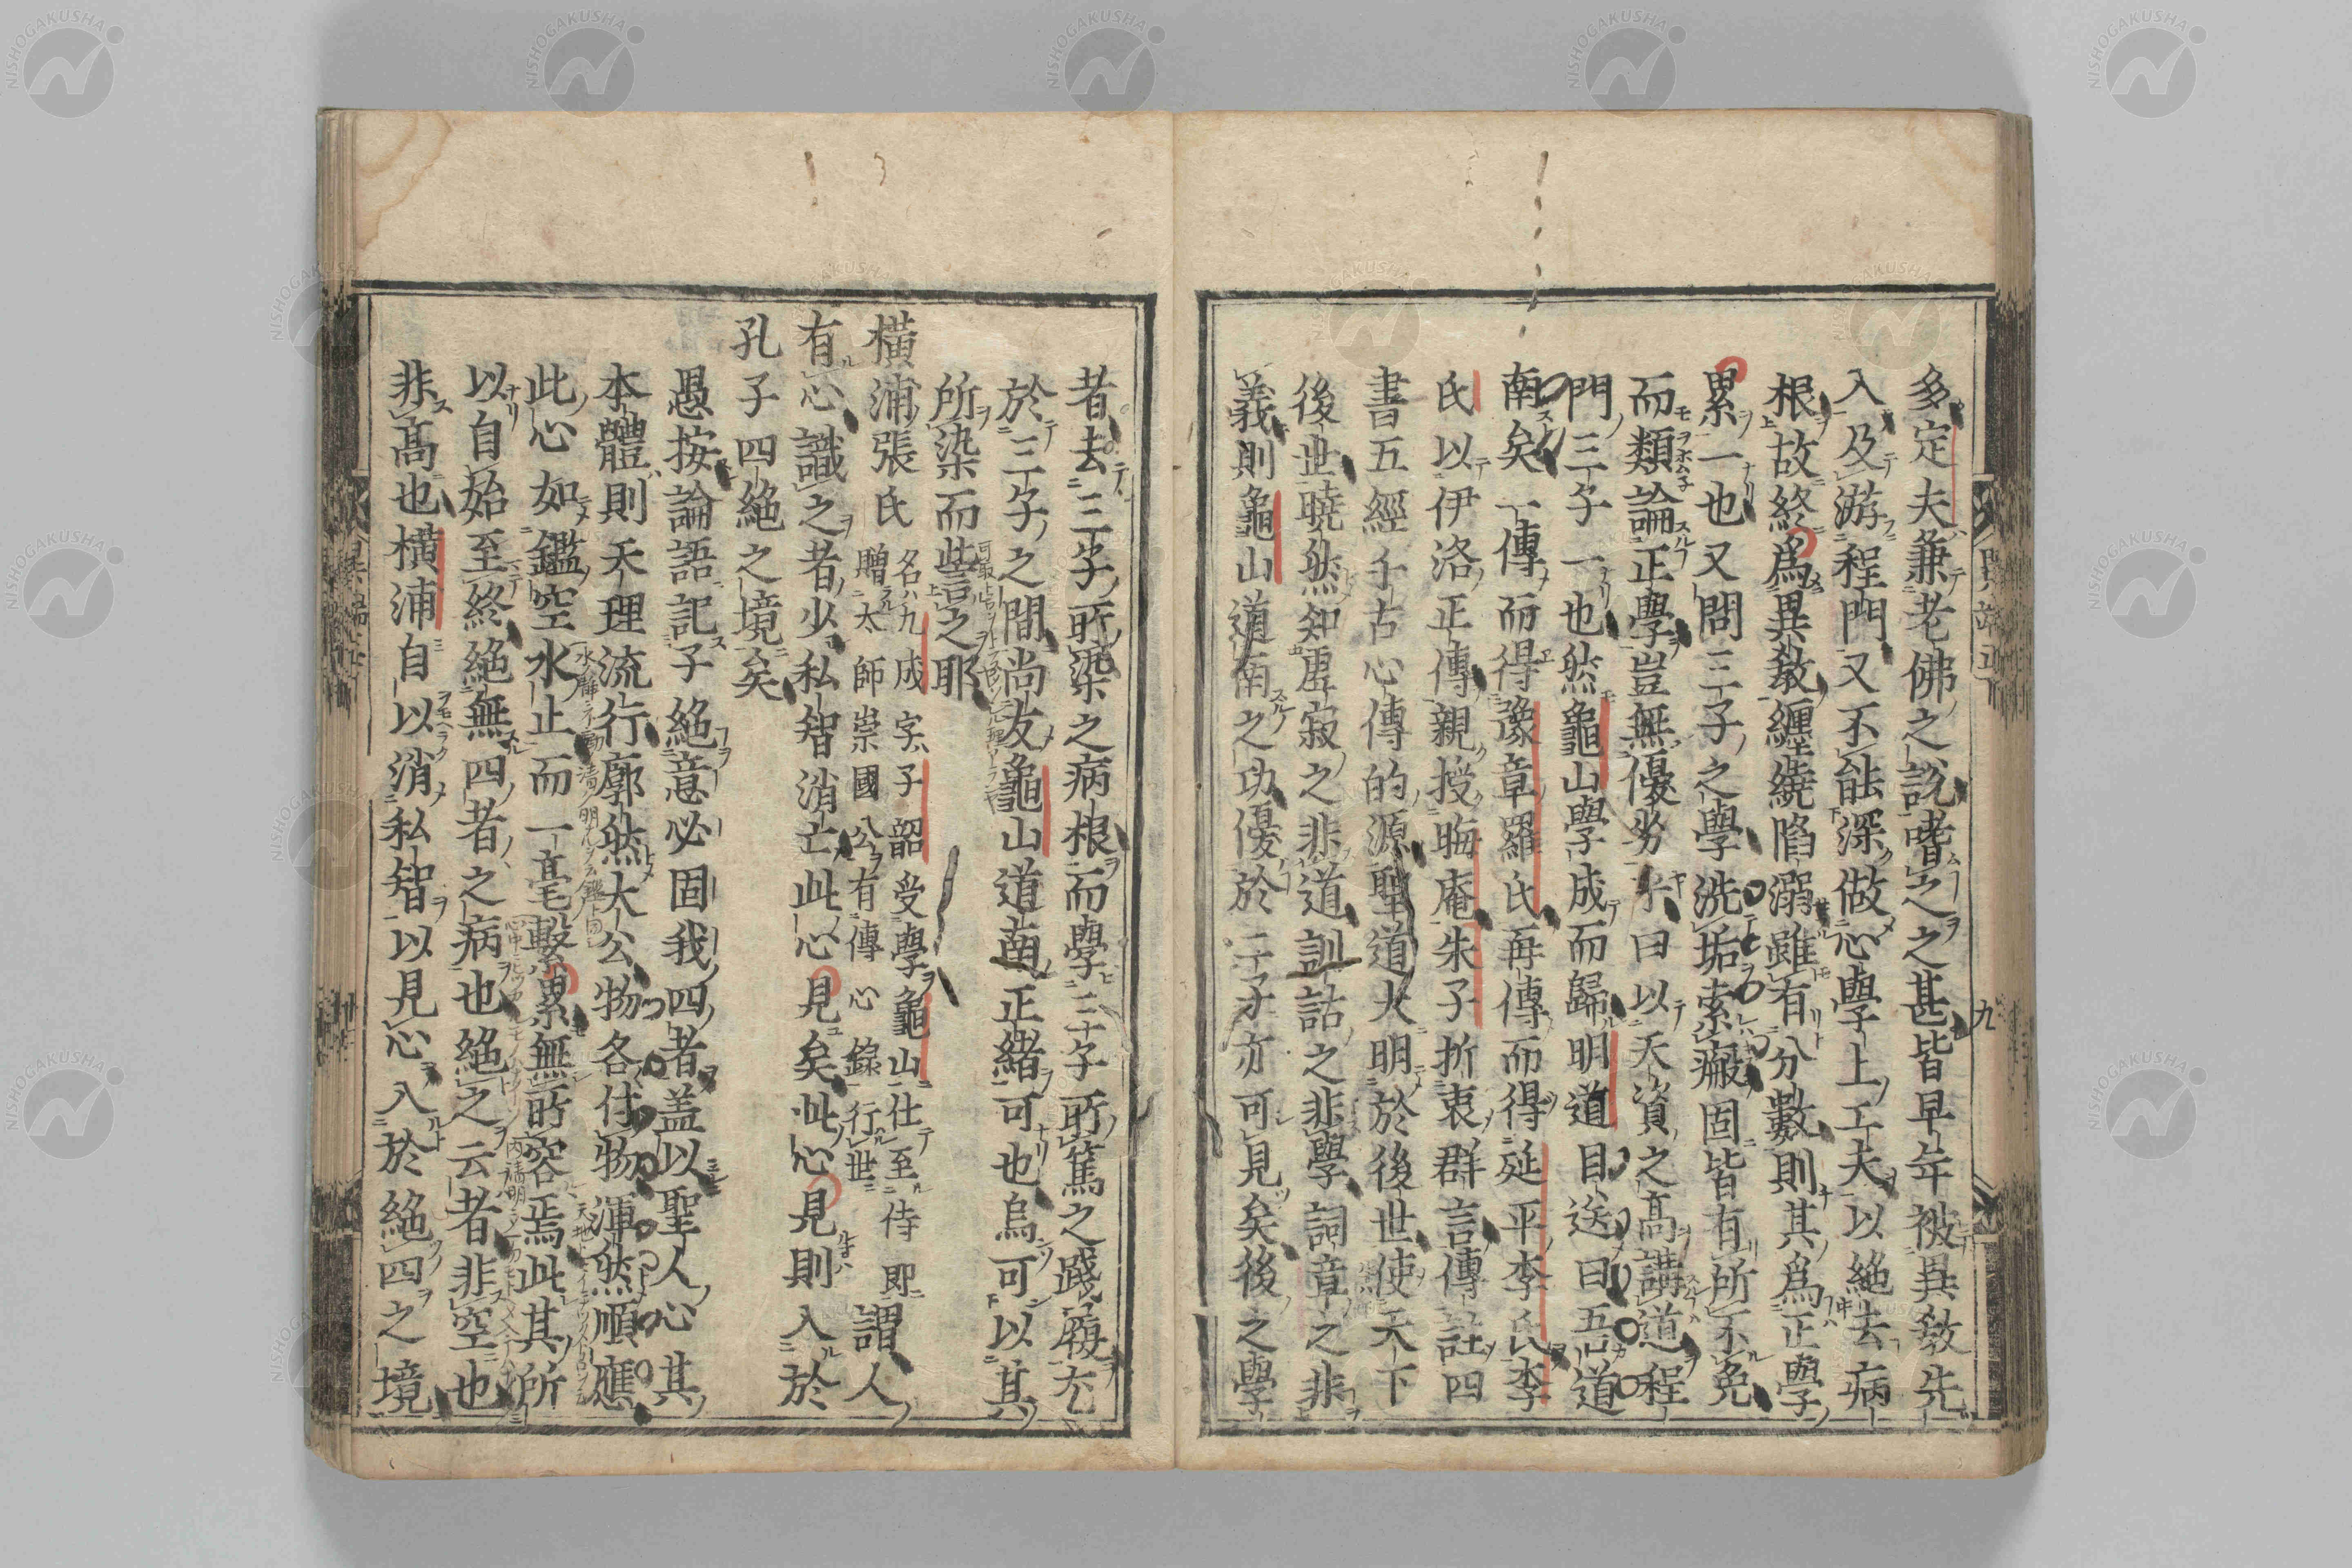 多定夫兼老佛之說嗜之之甚皆早年被異教先
入及游程門又不能深做心學上工夫以絕去病
根故終爲異敎纏繞陷溺雖有分數則其爲正學
累一也又問三子之學洗垢索瘢固皆有所不免
而類論正學豈無優劣乎曰以天資之高講道程
門三子一也然龜山學成而歸明道目送曰吾道
南矣一傳而得豫章羅氏再傳而得延平李氏李
氏以伊洛正傳親授晦庵朱子折衷群言傳註四
書五經千古心傳的源聖道大明於後世使天下
後世曉然知虛寂之非道訓詁之非學詞章之非
義則龜山道南之功優於二子亦可見矣後之學
者去三子所染之病根而學三子所篤之踐履尤
於三子之間尚友龜山道南正緒可也烏可以其
所染而訾之耶
橫浦張氏
名九成字子韶受學龜山仕至侍郎
贈太師崇國公有傳心錄行世
謂人
有心識之者少私智消亡此心見矣此心見則入於
孔子四絕之境矣
愚按論語記子絕意必固我四者盖以聖人心其
本體則天理流行廓然大公物各付物渾然順應
此心如鑑空水止而一毫繫累無所容焉此其所
以自始至終絕無四者之病也絕之云者非空也
非高也橫浦自以消私智以見心入於絕四之境
九
NISHOGAKUSHA